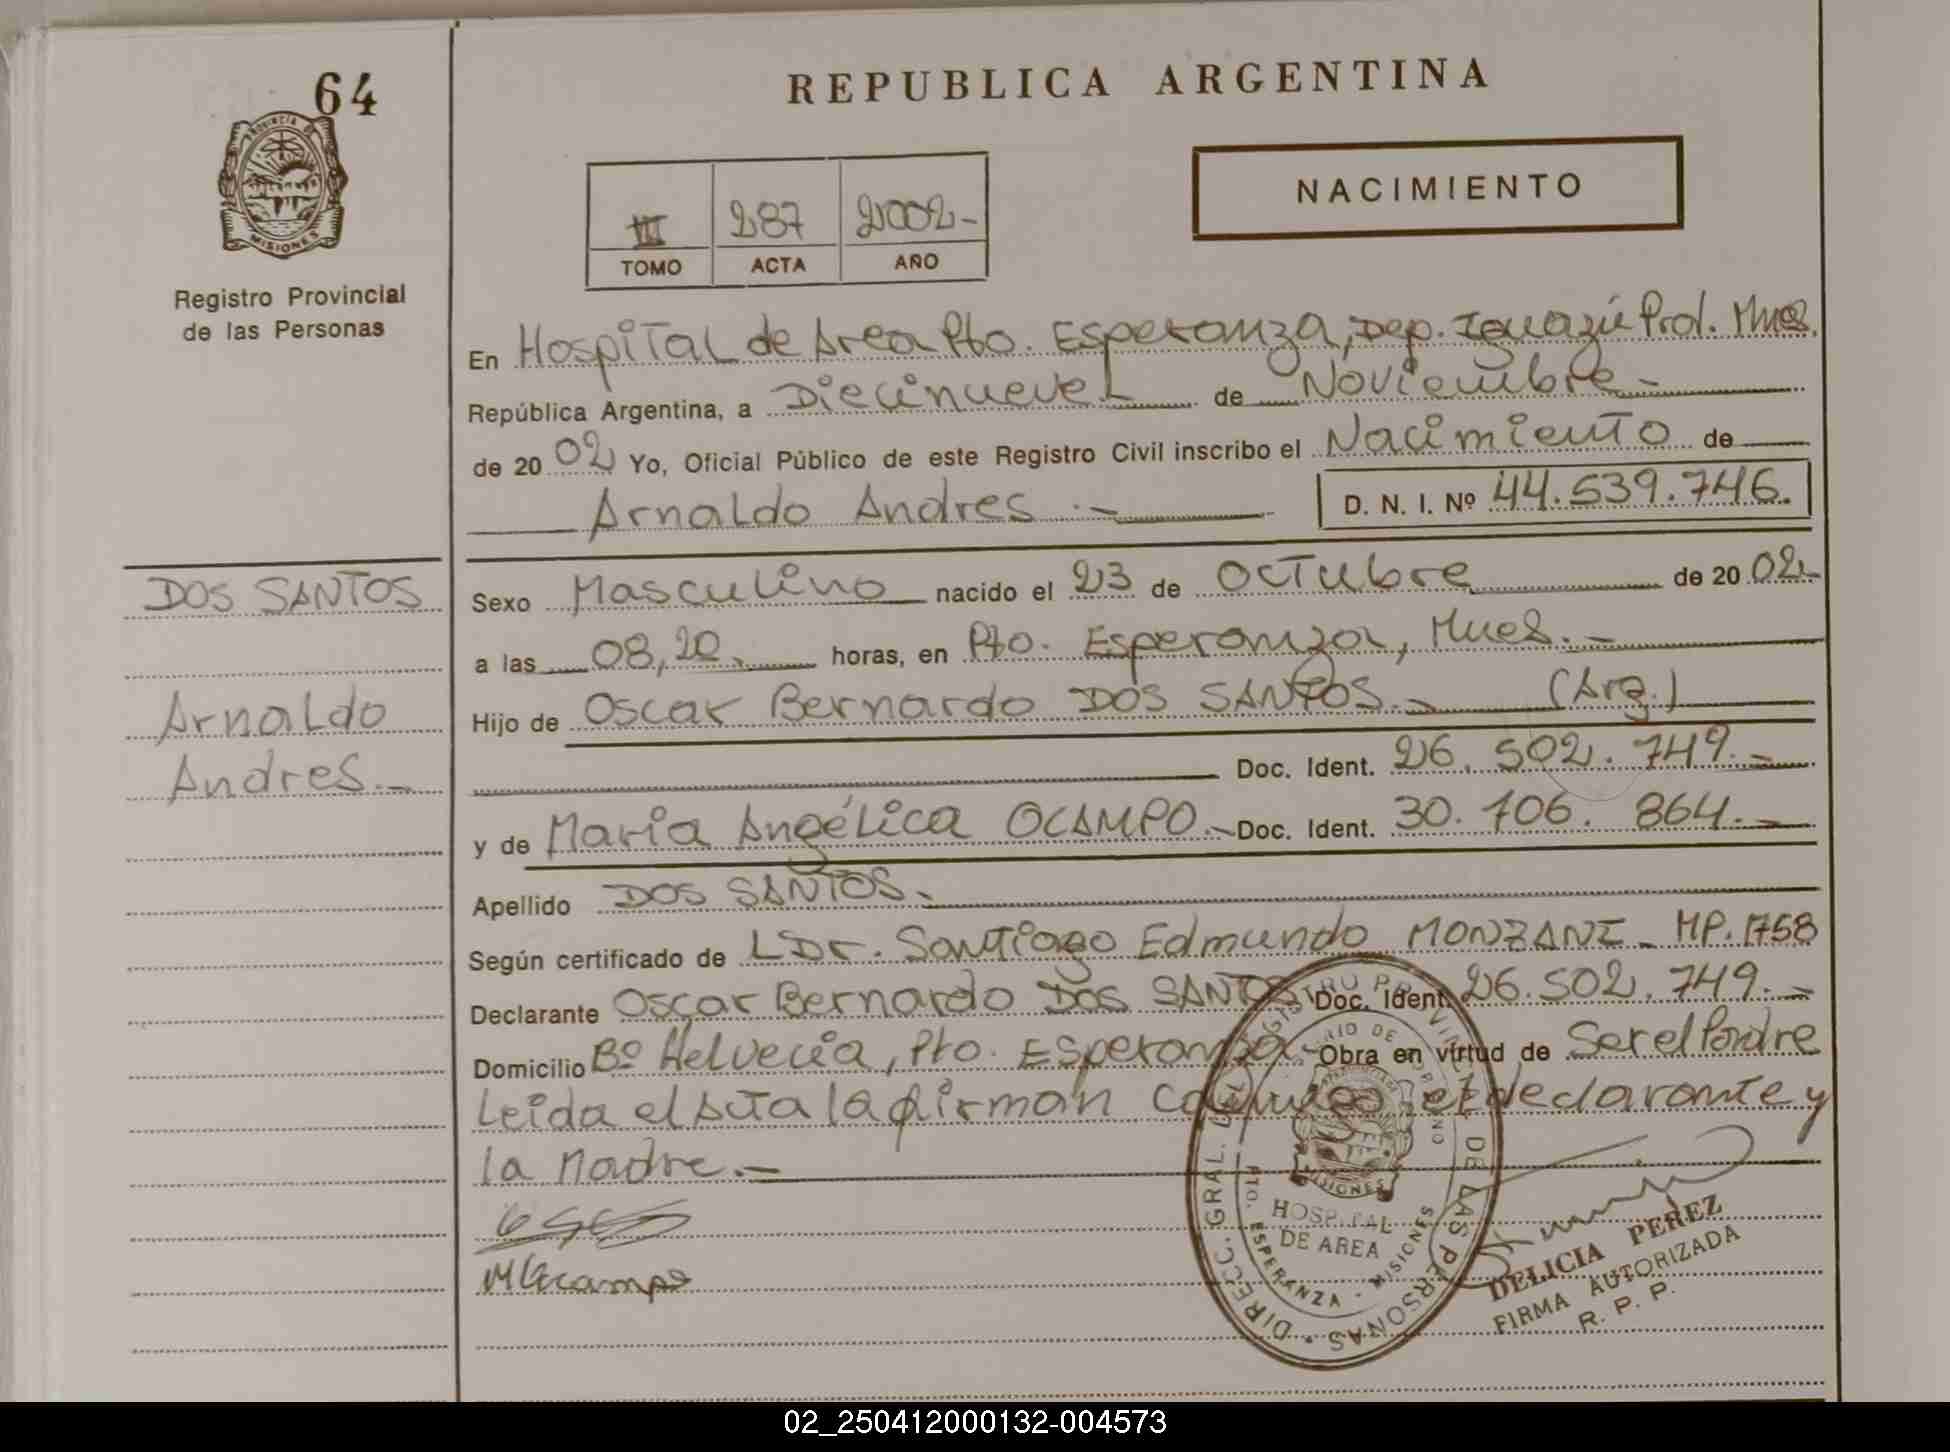 64
PROVINCIA DE
MISIONES
Registro Provincial
de las Personas
REPUBLICA ARGENTINA
NACIMIENTO
III 287 2002-
TOMO ACTA AÑO
En Hospital de Area Pto. Esperanza, Dep. Iguazú Prov. Mnes.
República Argentina, a Diecinueve de Noviembre -
de 20 02 Yo, Oficial Público de este Registro Civil inscribo el Nacimiento de
Arnaldo Andres .- D. N. I. Nº 44.539.746.
DOS SANTOS
Arnaldo
Andres.-
Sexo Masculino nacido el 23 de Octubre de 20 02-
a las 08,20. horas, en Pto. Esperanza, Mnes.-
Hijo de Oscar Bernardo DOS SANTOS.- (Arg.)
Doc. Ident. 26.502.749.-
y de Maria Angélica OCAMPO.- Doc. Ident. 30.706.864.-
Apellido DOS SANTOS.
Según certificado de Dr. Santiago Edmundo MONZANI - MP.1758
Declarante Oscar Bernardo DOS SANTOS Doc. Ident. 26.502.749.-
Domicilio Bº Helvecia, Pto. Esperanza Obra en virtud de Ser el Padre
Leida el Acta la firman conmigo el declarante y
la Madre.-
MOcampo
DIRECC. GRAL. DEL REGISTRO PROVINCIAL DE LAS PERSONAS
MINISTERIO DE GOBIERNO
MISIONES
HOSPITAL
DE AREA
PTO. ESPERANZA - MISIONES
DELICIA PEREZ
FIRMA AUTORIZADA
R. P. P.
02_250412000132-004573